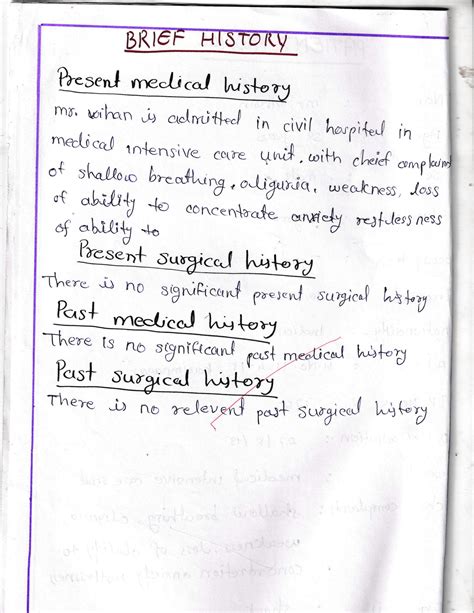 BRIEF HISTORY
Present medical history
mr. vihan is admitted in civil hospital in
medical intensive care unit, with cheief complaind
of shallow breathing, oliguria, weakness, loss
of ability to concentrate anxiety restlessness
of ability to
Present surgical history
There is no significant present surgical history
Past medical history
There is no significant past medical history
Past surgical history
There is no relevent past surgical history